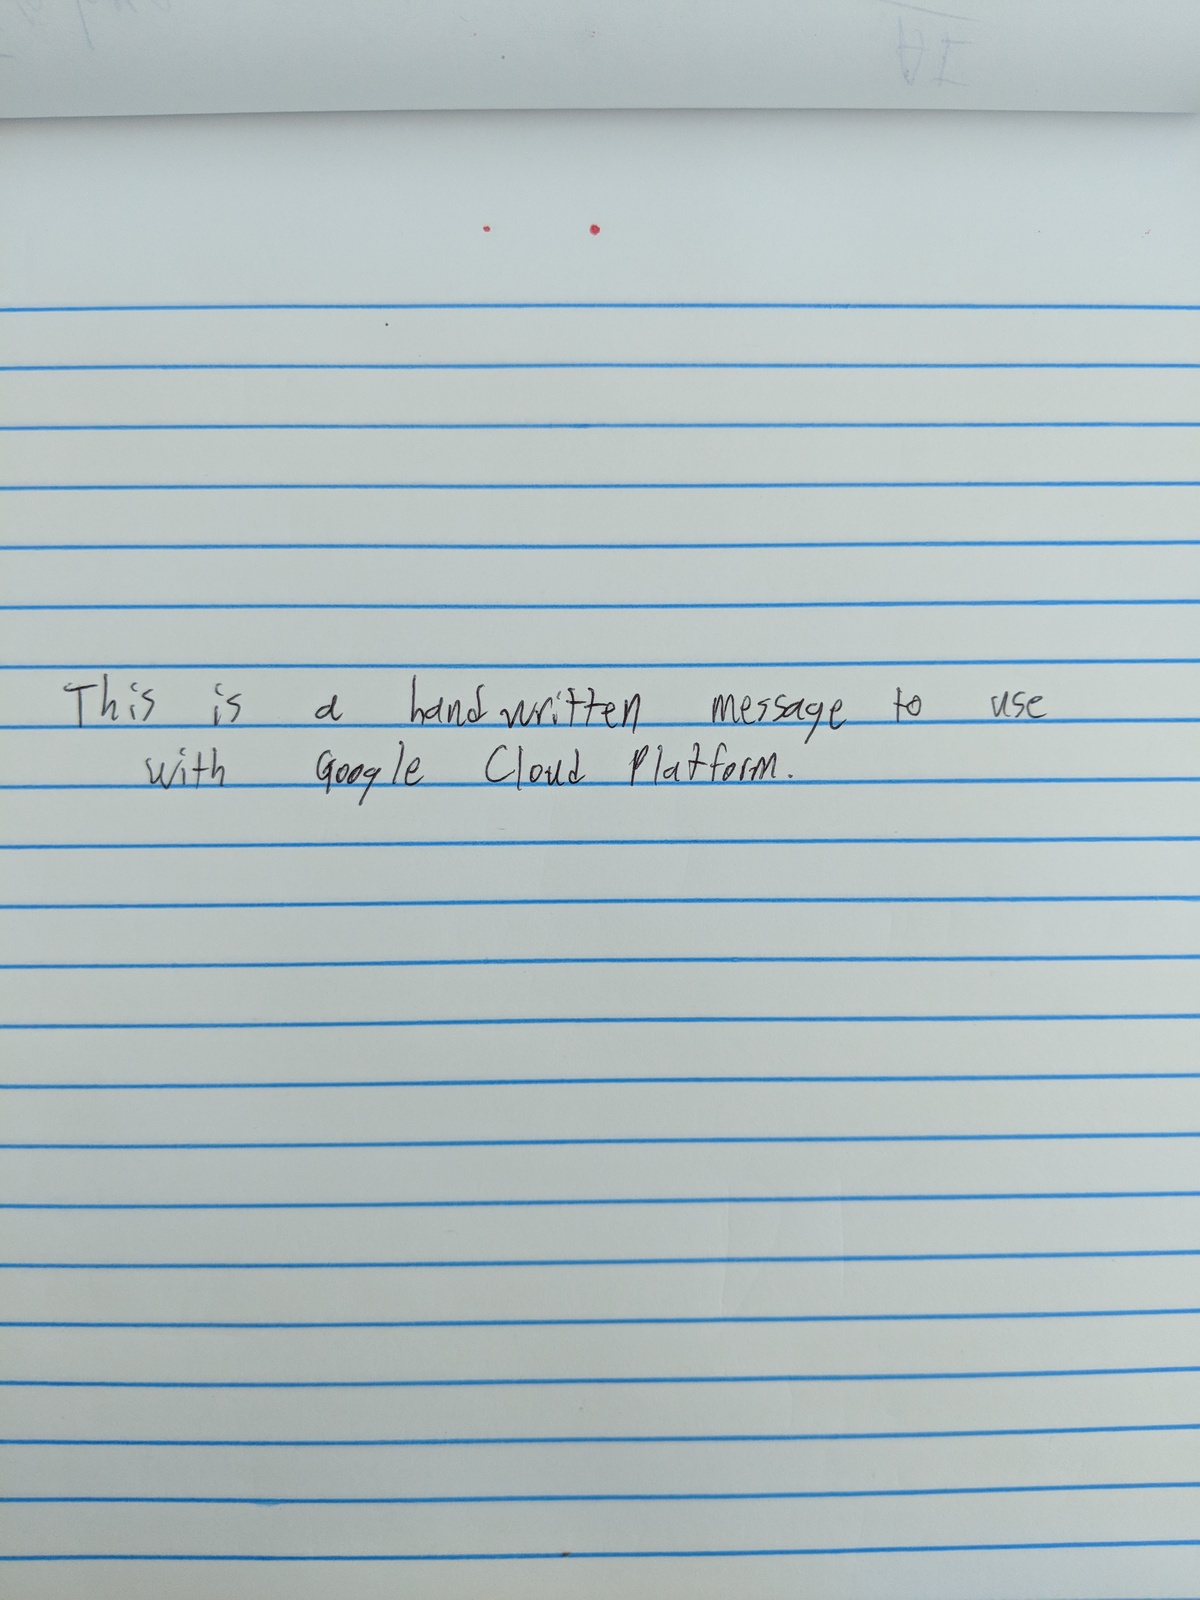 This is a handwritten message to use
with Google Cloud Platform.